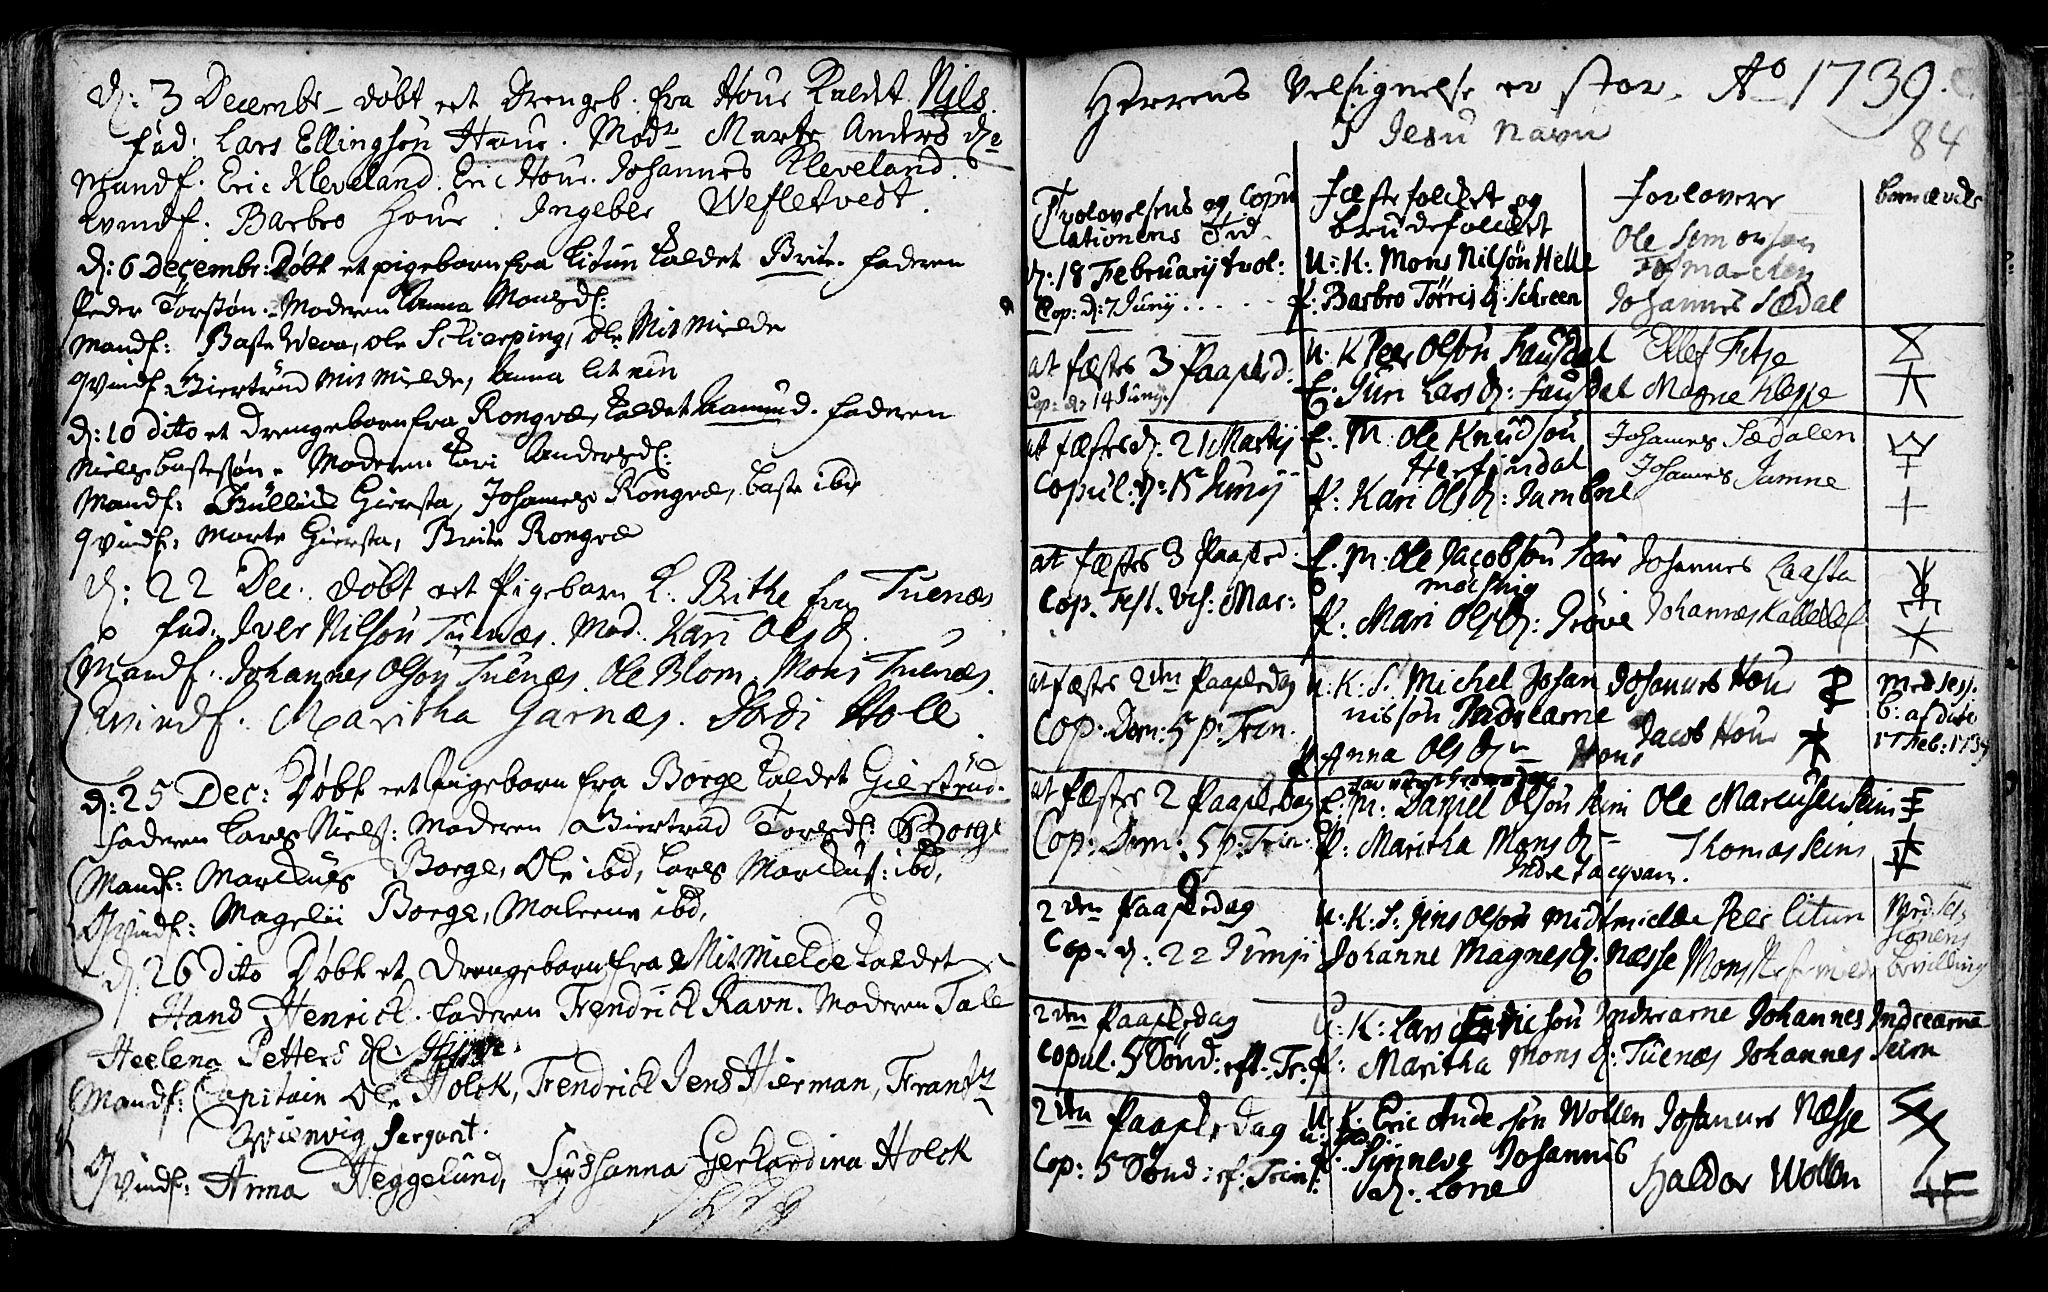 d: 3 Decembr – døbt eet Drengeb. fra Houe Kaldet Nils.
fad: Lars Ellingsøn Houe. Modr Marte Anders dr
Mandf. Eric Kleveland. Eric Houe. Johannes Kleveland.
Kvindf: Barbro Houe. Ingebor Wefletvedt.
d: 6 Decembr: Døbt et pigebarn fra Litun kaldet Brite. faderen
Peder Torstøn. Moderen Anna Monsd:
Mandf: Baste Wera, Ole Schierping, Ole Mitmielde
Qvindf: Biertrud Mitmielde, Anna Litun
d: 10 dito et Drengebarn fra Rongvæ, kaldet Aamund. faderen
Niels Bastesøn. Moderen Kari Andersd:
Mandf: Gullik Giersta, Johannes Rongvæ, Baste ibid
Qvindf: Marte Giersta, Brite Rongvæ
d: 22 Dec. døbt eet Pigebarn k. Brithe fra Tuenæs
fad. Iver Nilsøn Tuenæs. Mod. Kari Olsd.
Mandf. Johannes Olsøn Tuenæs. Ole Blom. Mons Tuenæs.
Kvindf. Maritha Garnæs. Jordi Hole
d: 25 Dec: Døbt eet Pigebarn fra Borge kaldet Giertrud.
faderen Lars Niels: Moderen Biertrud Torsd: Borge
Mandf: Marckus Borge, Ole ibd, Lars Marckus: ibd,
Qvindf: Mageli Borge, Malene ibd,
d: 26 dito Døbt et Drengebarn fra Mitmielde kaldet
Hans Henrick. faderen Frendrick Ravn. Moderen Tale
Heelena Petters d:
Mandf: Capitain Ole Holck, Frendrick Jens Hierman, Frantz
Wienvig Sergiant.
Qvindf: Anna Heggelund, Sussanna Gerhardina Holck
Herrens Velsignelse er stor. Ao 1739.
I Jesu Navn
84
Trolovelsens og Copu
lationens Tid
Fæstefolcket og
brudefolcket
Forlovere
bomærcke
d. 18 Februarij trol:
Cop: d: 7 Junij
U: K: Mons Nilsøn Helle
P: Barbro Tørris d: Schreen
Ole Simonsøn
Johannes Sædal
at fæstes 3 Paaskd.
Cop: d: 14 Junij
U. K Peer Olsøn Fausdal
E: Guri Lars d: Fausdal
Ellef Fitje
Magne Kleppe
at fæstes d: 21 Martij
Copul: d: 15 Junij
E: M: Ole Knudsøn
Herfindal
P: Kari Ols d: Jambne
Johannes Sædalen
Johannes Jamne
at fæstes 3 Paaskd
Cop. Fest. Vis: Mar:
E. M: Ole Jacobsøn
P. Mari Ols d: Prøve
Johannes Laasta
Johannes Kallekl
at fæstes 2den Paaskedag
Cop: Dom: 5 p: Trin.
U: K: S. Michel Johan
nissøn Indrearne
P Anna Ols dr Houe
Johannes Houe
Jacob Houe
Med Sess.
b: af dato
17 Feb: 1739
at fæstes 2 Paaskedag
Cop: Dom: 5 p: Trin:
E: M: Daniel Olsøn Seim
P: Maritha Mons d
Indre Jacqvam.
Ole Marcusen Seim
Thomas Seim
2den Paaskedag
Cop: d: 22 Junij
U: K: S. Jens Olsøn Midtmielde
Johanne Magnes d: Næsse
Peer Litun
Med Ses
sionens
bevilling
2den Paaskedag
Copul. 5 Sønd: eft: Tr:
U: K: Lars Ericsøn Indrearne
P. Maritha Mons d: Tuenæs
Johannes Indrearne
Johannes Seim
2den Paaskedag
Cop: 5 Sønd: ef: Trin:
U. K: Eric Andersøn Wollen
P. Sønneve Johannis
d: Lone
Johannes Næsse
Haldor Wollen